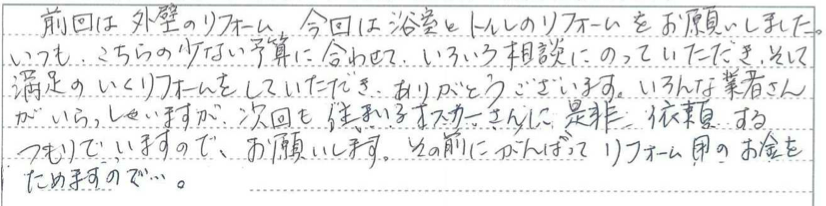 前回は外壁のリフォーム、今回は浴室とトイレのリフォームをお願いしました。
いつも、こちらの少ない予算に合わせて、いろいろ相談にのっていただき、そして
満足のいくリフォームをしていただき、ありがとうございます。いろんな業者さん
がいらっしゃいますが、次回も住まいるオスカーさんに是非、依頼する
つもりでいますので、お願いします。その前にがんばってリフォーム用のお金を
ためますので…。